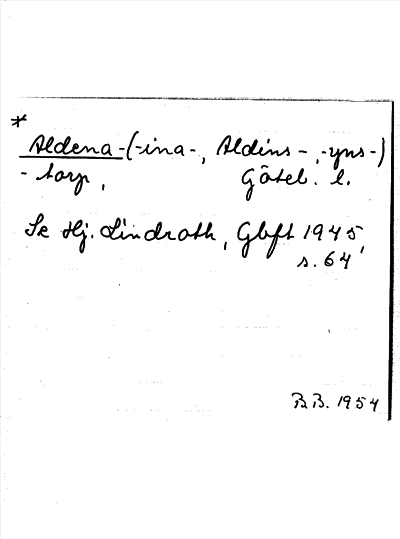 *
Aldena-(-ina-, Aldins-, -yns-)
-torp, Göteb. l.
Se Hj. Lindroth, Gbft 1945,
s. 64
B.B. 1954